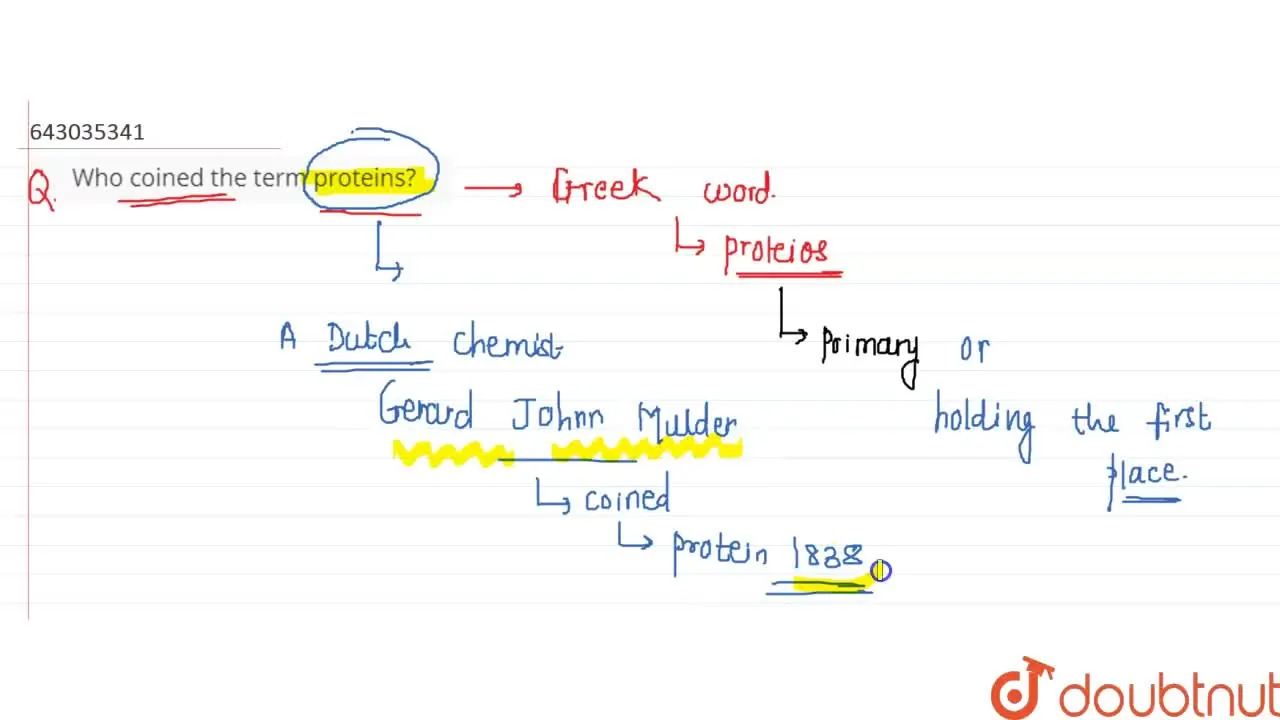 643035341
Q. Who coined the term proteins? → Greek word.
↳ proteios
A Dutch chemist
↳ primary or
Gerard Johnn Mulder
holding the first
place.
↳ coined
↳ protein 1838
doubtnut